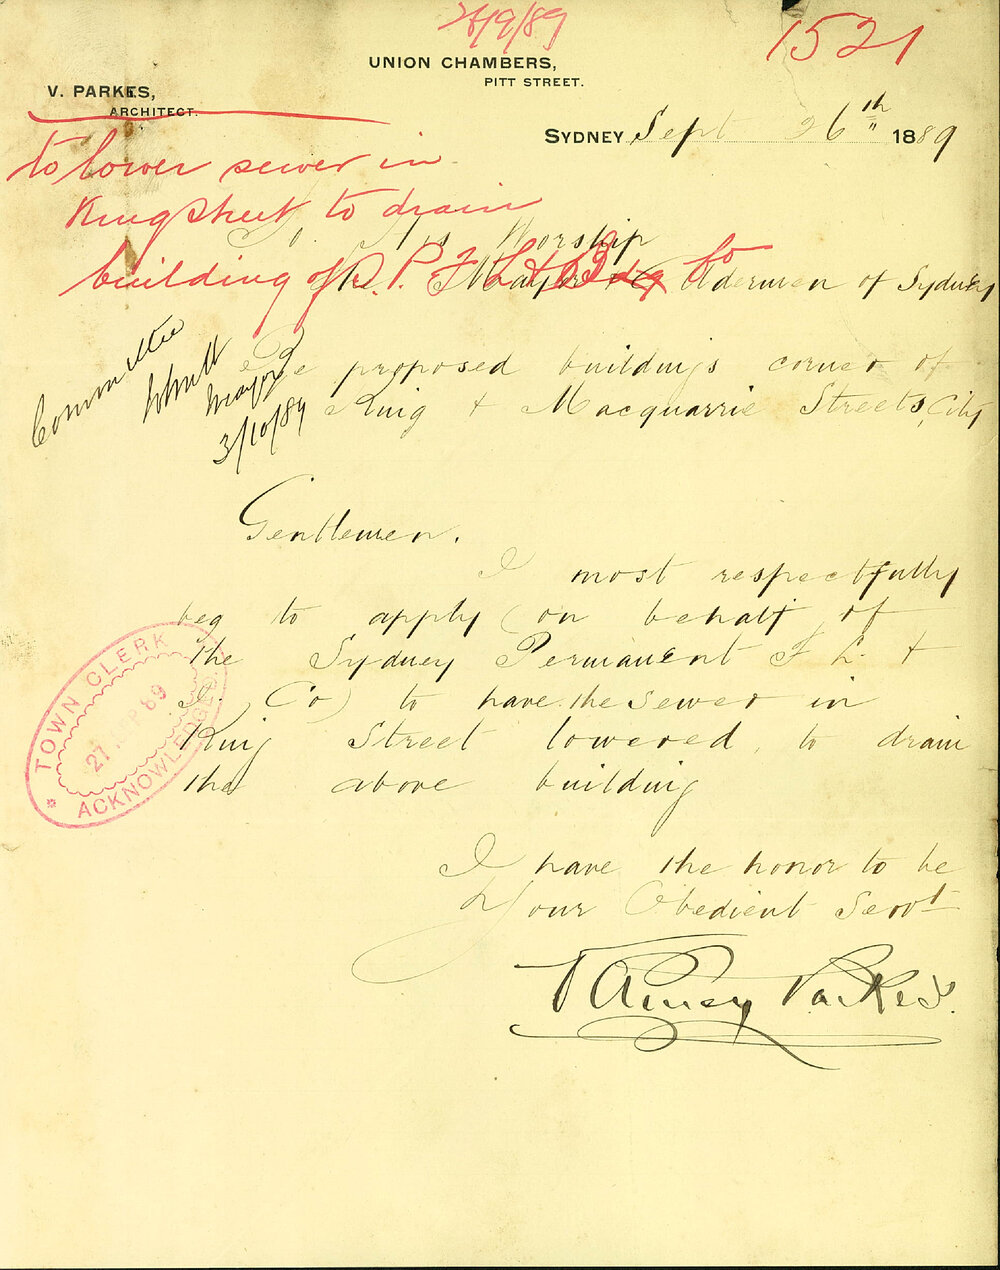 26/9/89
1521
UNION CHAMBERS,
PITT STREET.
V. PARKES,
ARCHITECT.
SYDNEY Sept 26th 1889
to lower sewer in
King Street to drain
building of S. P. F L & B Co
To. His Worship
The Mayor & Aldermen of Sydney
Committee
Mayor
3/10/89
Re proposed buildings corner of
King & Macquarrie Streets, City
Gentlemen.
I most respectfully
beg to apply (on behalf of
the Sydney Permanent F L. &
Co) to have the sewer in
King Street lowered, to drain
the above building
TOWN CLERK
27 SEP 89
ACKNOWLEDGED
I have the honor to be
Your Obedient Servt
Varney Parkes.